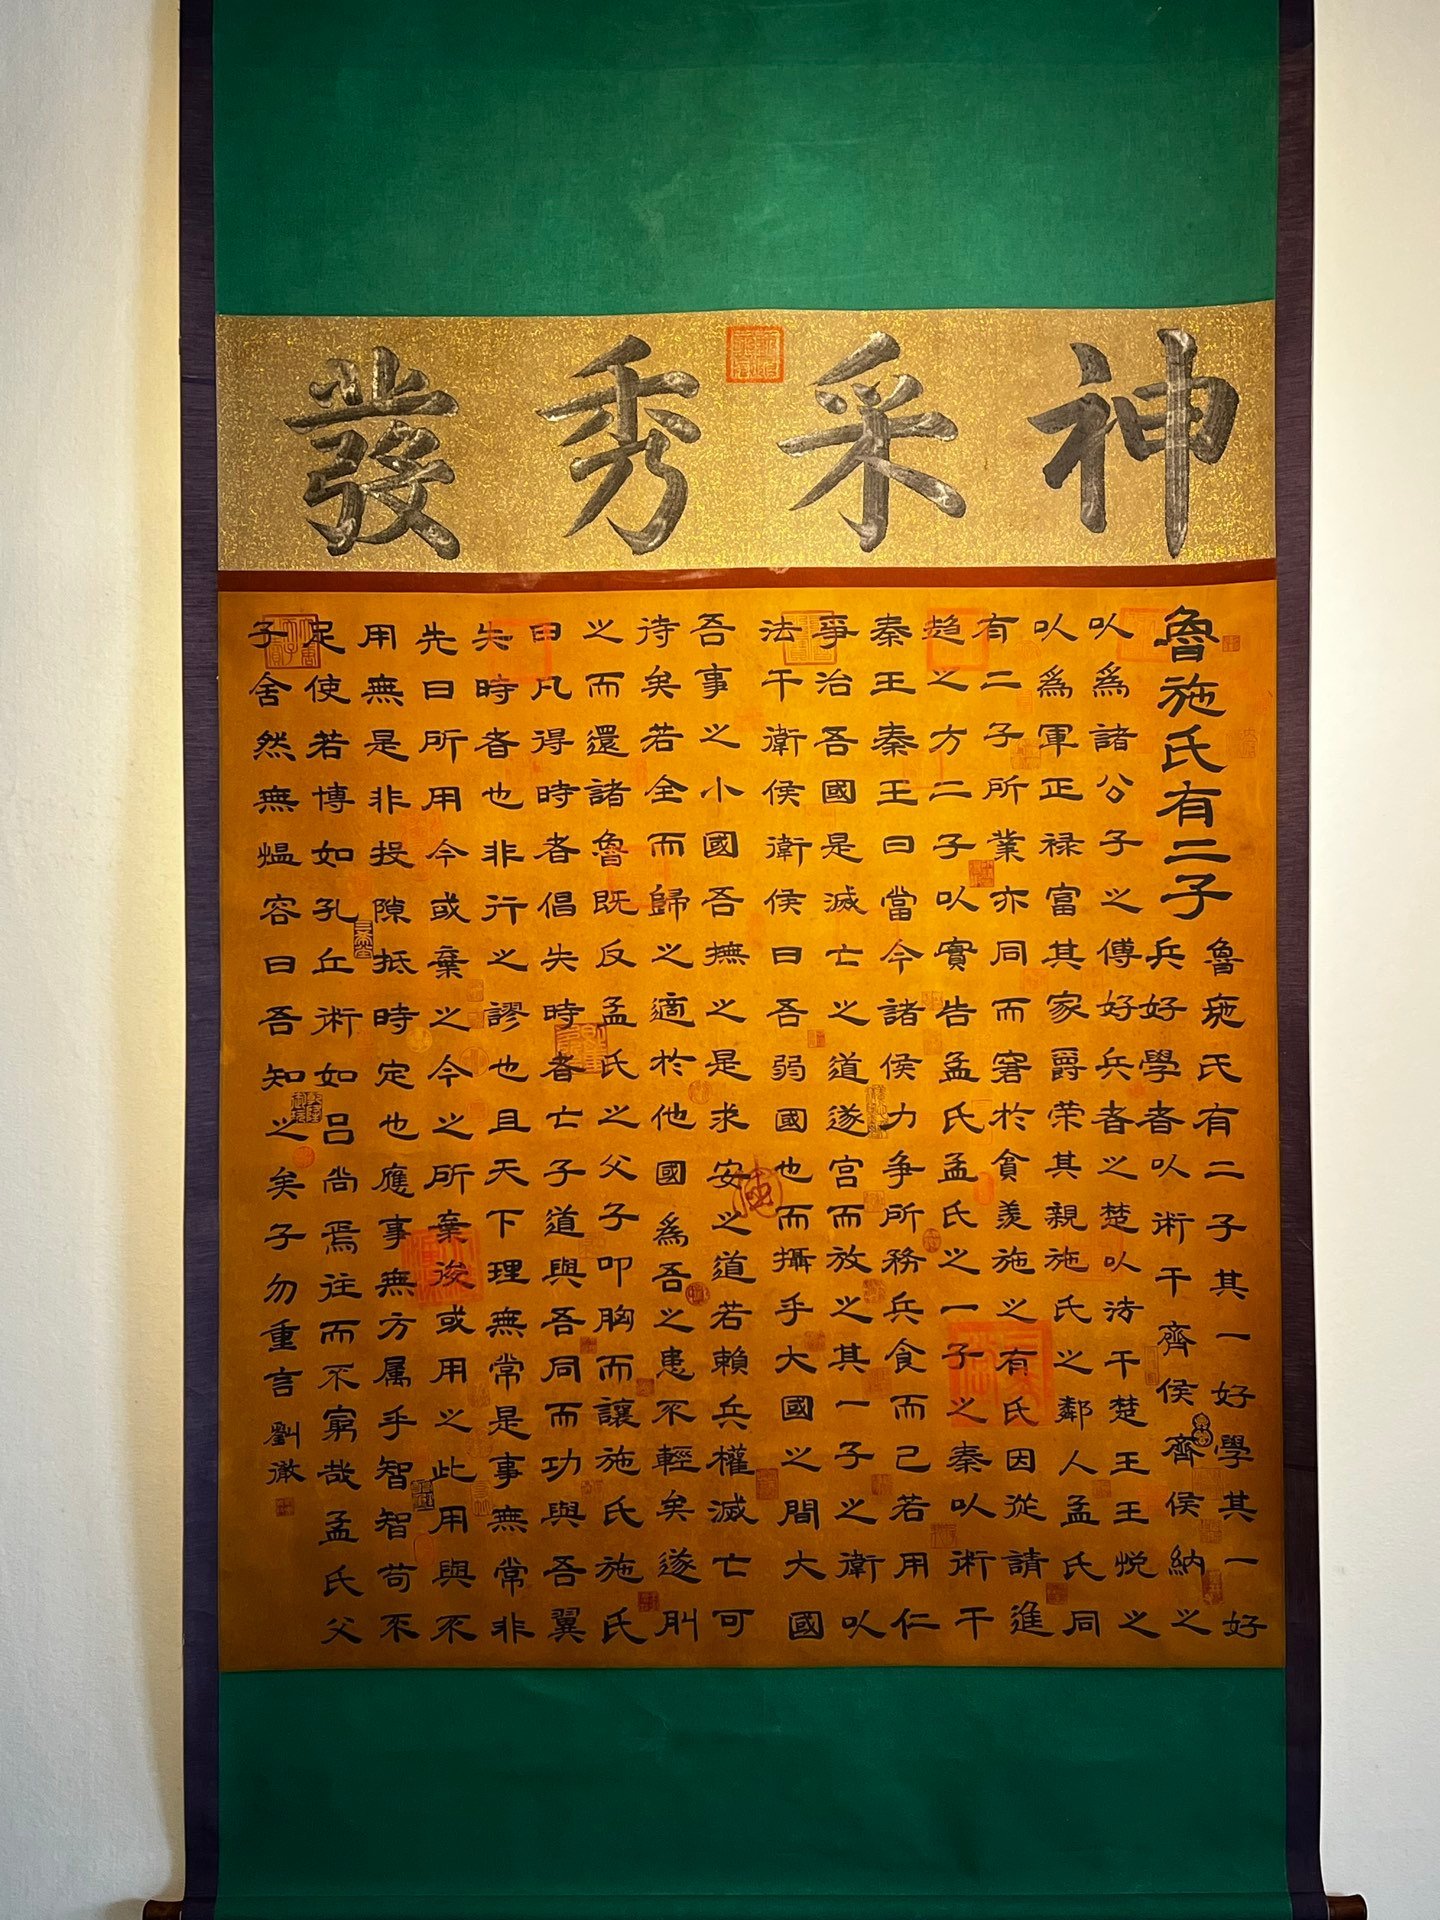 神采秀發
魯施氏有二子
魯施氏有二子其一好學其一好
兵好學者以術干齊侯齊侯納之
以爲諸公子之傅好兵者之楚以法干楚王王悦之
以爲軍正禄富其家爵荣其親施氏之鄰人孟氏同
有二子所業亦同而窘於貧羨施之有氏因從請進
趍之方二子以實告孟氏孟氏之一子之秦以術干
秦王秦王曰當今諸侯力争所務兵食而己若用仁
爭治吾國是滅亡之道遂宫而放之其一子之衛以
法干衛侯衛侯曰吾弱國也而攝乎大國之間大國
吾事之小國吾撫之是求安之道若賴兵權滅亡可
待矣若全而歸之適於他國爲吾之患不輕矣遂刖
之而還諸魯既反孟氏之父子叩胸而讓施氏施氏
曰凡得時者倡失時者亡子道與吾同而功與吾翼
失時者也非行之謬也且天下理無常是事無常非
先曰所用今或棄之今之所棄後或用之此用與不
用無是非投隙抵時定也應事無方属乎智智苟不
足使若博如孔丘術如吕尚焉往而不窮哉孟氏父
子舍然無愠容曰吾知之矣子勿重言劉澂